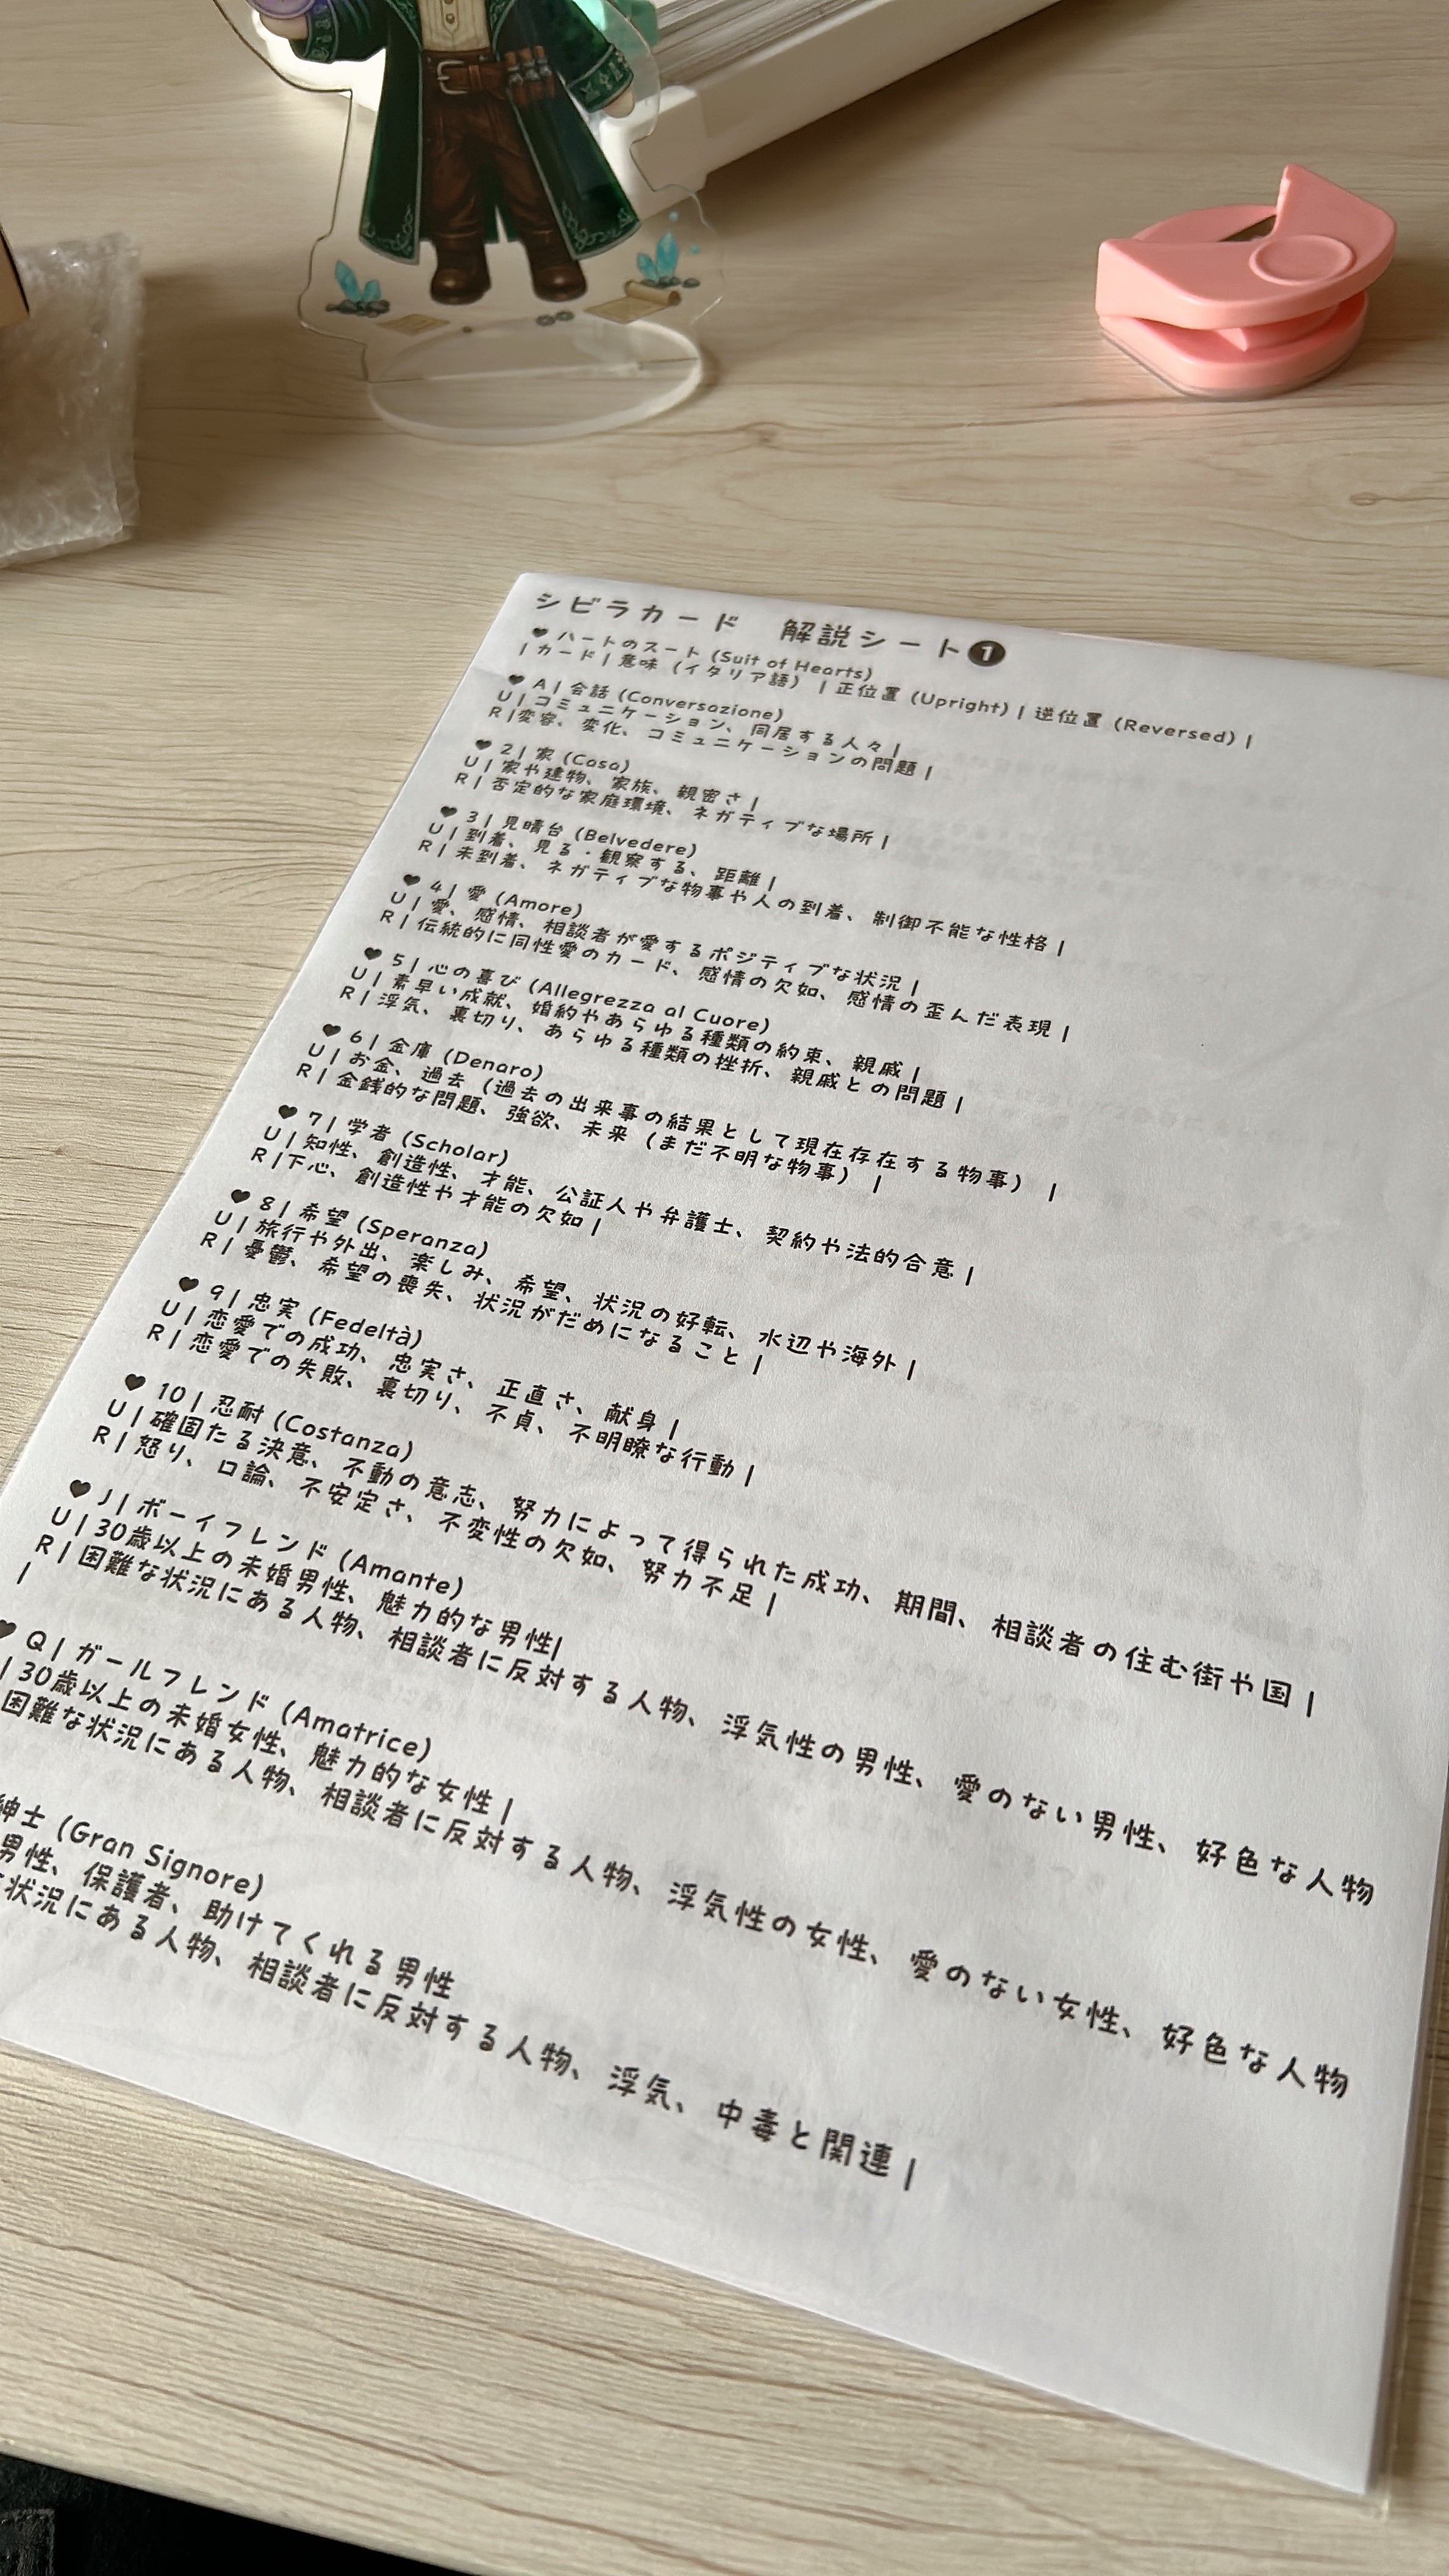 シビラカード 解説シート❶
♥ ハートのスート (Suit of Hearts)
| カード | 意味 (イタリア語) | 正位置 (Upright) | 逆位置 (Reversed) |
♥ A | 会話 (Conversazione)
U | コミュニケーション、同居する人々 |
R | 変容、変化、コミュニケーションの問題 |
♥ 2 | 家 (Casa)
U | 家や建物、家族、親密さ |
R | 否定的な家庭環境、ネガティブな場所 |
♥ 3 | 見晴台 (Belvedere)
U | 到着、見る・観察する、距離 |
R | 未到着、ネガティブな物事や人の到着、制御不能な性格 |
♥ 4 | 愛 (Amore)
U | 愛、感情、相談者が愛するポジティブな状況 |
R | 伝統的に同性愛のカード、感情の欠如、感情の歪んだ表現 |
♥ 5 | 心の喜び (Allegrezza al Cuore)
U | 素早い成就、婚約やあらゆる種類の約束、親戚 |
R | 浮気、裏切り、あらゆる種類の挫折、親戚との問題 |
♥ 6 | 金庫 (Denaro)
U | お金、過去 (過去の出来事の結果として現在存在する物事) |
R | 金銭的な問題、強欲、未来 (まだ不明な物事) |
♥ 7 | 学者 (Scholar)
U | 知性、創造性、才能、公証人や弁護士、契約や法的合意 |
R | 下心、創造性や才能の欠如 |
♥ 8 | 希望 (Speranza)
U | 旅行や外出、楽しみ、希望、状況の好転、水辺や海外 |
R | 憂鬱、希望の喪失、状況がだめになること |
♥ 9 | 忠実 (Fedeltà)
U | 恋愛での成功、忠実さ、正直さ、献身 |
R | 恋愛での失敗、裏切り、不貞、不明瞭な行動 |
♥ 10 | 忍耐 (Costanza)
U | 確固たる決意、不動の意志、努力によって得られた成功、期間、相談者の住む街や国 |
R | 怒り、口論、不安定さ、不変性の欠如、努力不足 |
♥ J | ボーイフレンド (Amante)
U | 30歳以上の未婚男性、魅力的な男性|
R | 困難な状況にある人物、相談者に反対する人物、浮気性の男性、愛のない男性、好色な人物
|
♥ Q | ガールフレンド (Amatrice)
| 30歳以上の未婚女性、魅力的な女性 |
困難な状況にある人物、相談者に反対する人物、浮気性の女性、愛のない女性、好色な人物
紳士 (Gran Signore)
男性、保護者、助けてくれる男性
状況にある人物、相談者に反対する人物、浮気、中毒と関連 |